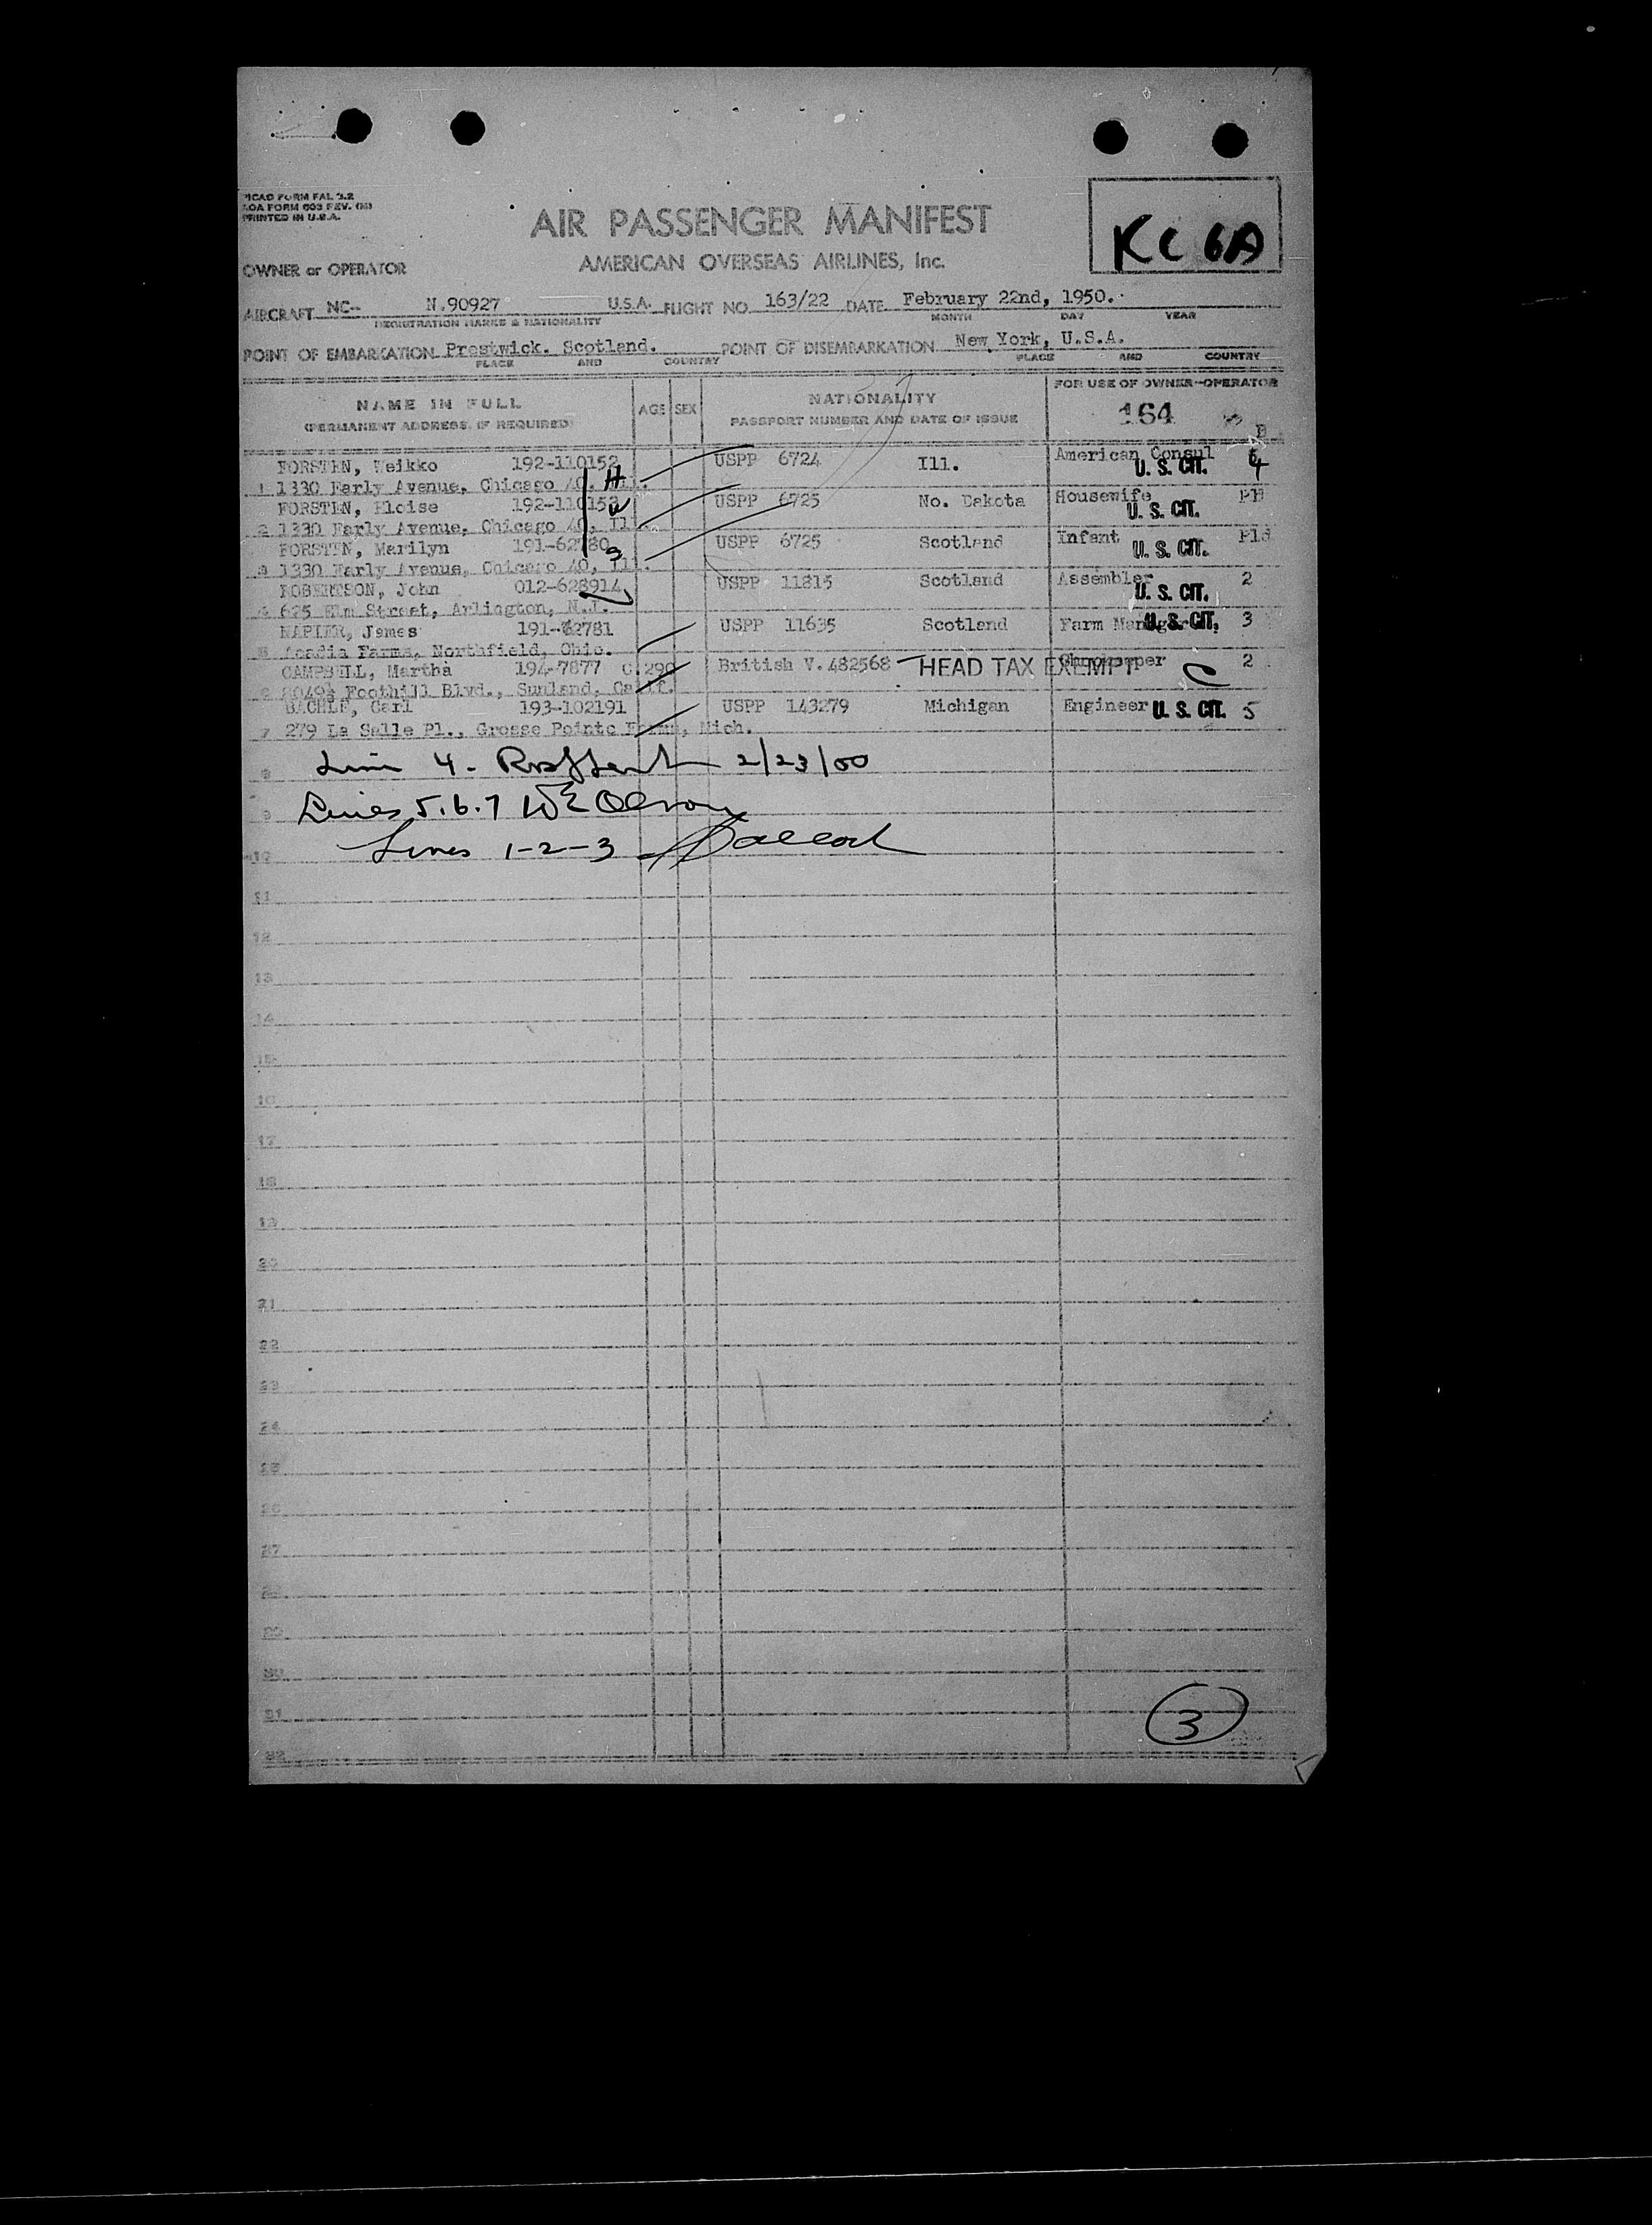 ICAO FORM FAL 2.2
AOA FORM 603 REV.
PRINTED IN U.S.A.
AIR PASSENGER MANIFEST
KC 6A
OWNER or OPERATOR AMERICAN OVERSEAS AIRLINES, Inc.
AIRCRAFT NC-- N.90927 U.S.A. FLIGHT NO. 163/22 DATE February 22nd, 1950.
REGISTRATION MARKS & NATIONALITY MONTH DAY YEAR
POINT OF EMBARKATION Prestwick. Scotland. POINT OF DISEMBARKATION New York, U.S.A.
PLACE AND COUNTRY PLACE AND COUNTRY
NAME IN FULL AGE SEX NATIONALITY FOR USE OF OWNER-OPERATOR
(PERMANENT ADDRESS, IF REQUIRED) PASSPORT NUMBER AND DATE OF ISSUE 164
FORSTEN, Weikko 192-110152 USPP 6724 Ill. American Consul U. S. CIT. 4
1 1330 Early Avenue, Chicago 40, Ill. H
FORSTEN, Eloise 192-110153 USPP 6725 No. Dakota Housewife U. S. CIT.
2 1330 Early Avenue, Chicago 40, Ill.
FORSTEN, Marilyn 191-62780 USPP 6725 Scotland Infant U. S. CIT.
3 1330 Early Avenue, Chicago 40, Ill.
ROBERTSON, John 012-628914 USPP 11815 Scotland Assembler U. S. CIT. 2
4 625 Elm Street, Arlington, N.J.
NAPIER, James 191-62781 USPP 11635 Scotland Farm Manager U. S. CIT. 3
5 Acadia Farms, Northfield, Ohio.
CAMPBELL, Martha 194-7877 C.290 British V. 482568 HEAD TAX EXEMPT 2
6 8049½ Foothill Blvd., Sunland, Calif.
BACHLE, Carl 193-102191 USPP 143279 Michigan Engineer U. S. CIT. 5
7 279 La Salle Pl., Grosse Pointe Farms, Mich.
8 Line 4 - 2/23/50
9 Lines 5.6.7 WE Olson
10 Lines 1-2-3
11
12
13
14
15
16
17
18
19
20
21
22
23
24
25
26
27
28
29
30
31
3
32